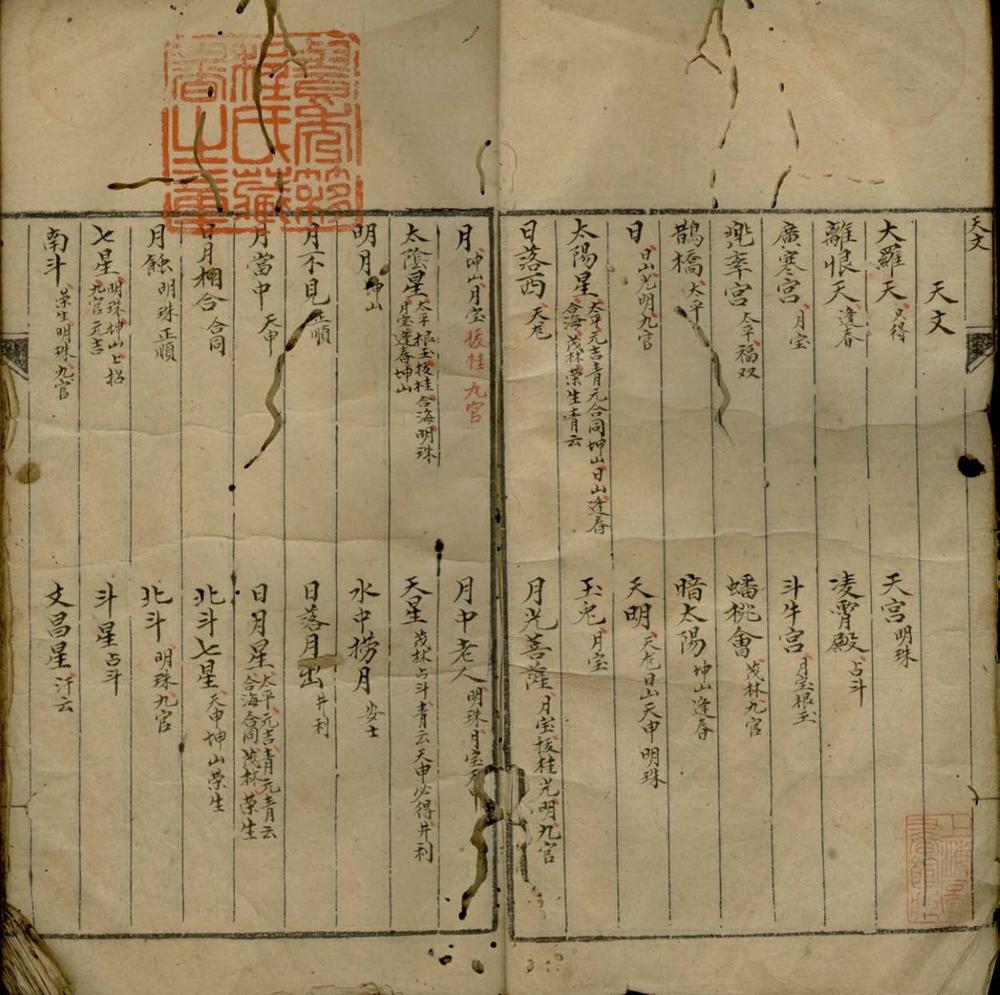 天文
天文
大羅天 只得
天宫 明珠
離恨天 逢春
凌霄殿 占斗
廣寒宫 月宝
斗牛宫 月宝根玉
兠率宮 太平福双
蟠桃會 茂林九官
鵲橋 太平
暗太陽 坤山逢春
日 日山光明九官
天明 天龙日山天申明珠
太陽星 太平元吉青元合同坤山日山逢春
合海茂林荣生青云
玉兔 月宝
日落西 天龙
月光菩薩 月宝扳桂光明九官
月 坤山月宝扳桂九官
月中老人 明珠月宝天申
太陰星 太平根玉扳桂合海明珠
月宝逢春坤山
天星 茂林占斗青云天申必得井利
明月 坤山
水中撈月 安士
月不見 正順
日落月出 井利
月當中 天申
日月星 太平元吉青元青云
合海合同茂林荣生
日月相合 合同
北斗七星 天申坤山荣生
月蝕 明珠正順
北斗 明珠九官
七星 明珠坤山七招
九官元吉
斗星 占斗
南斗 荣生明珠九官
文昌星 汗云